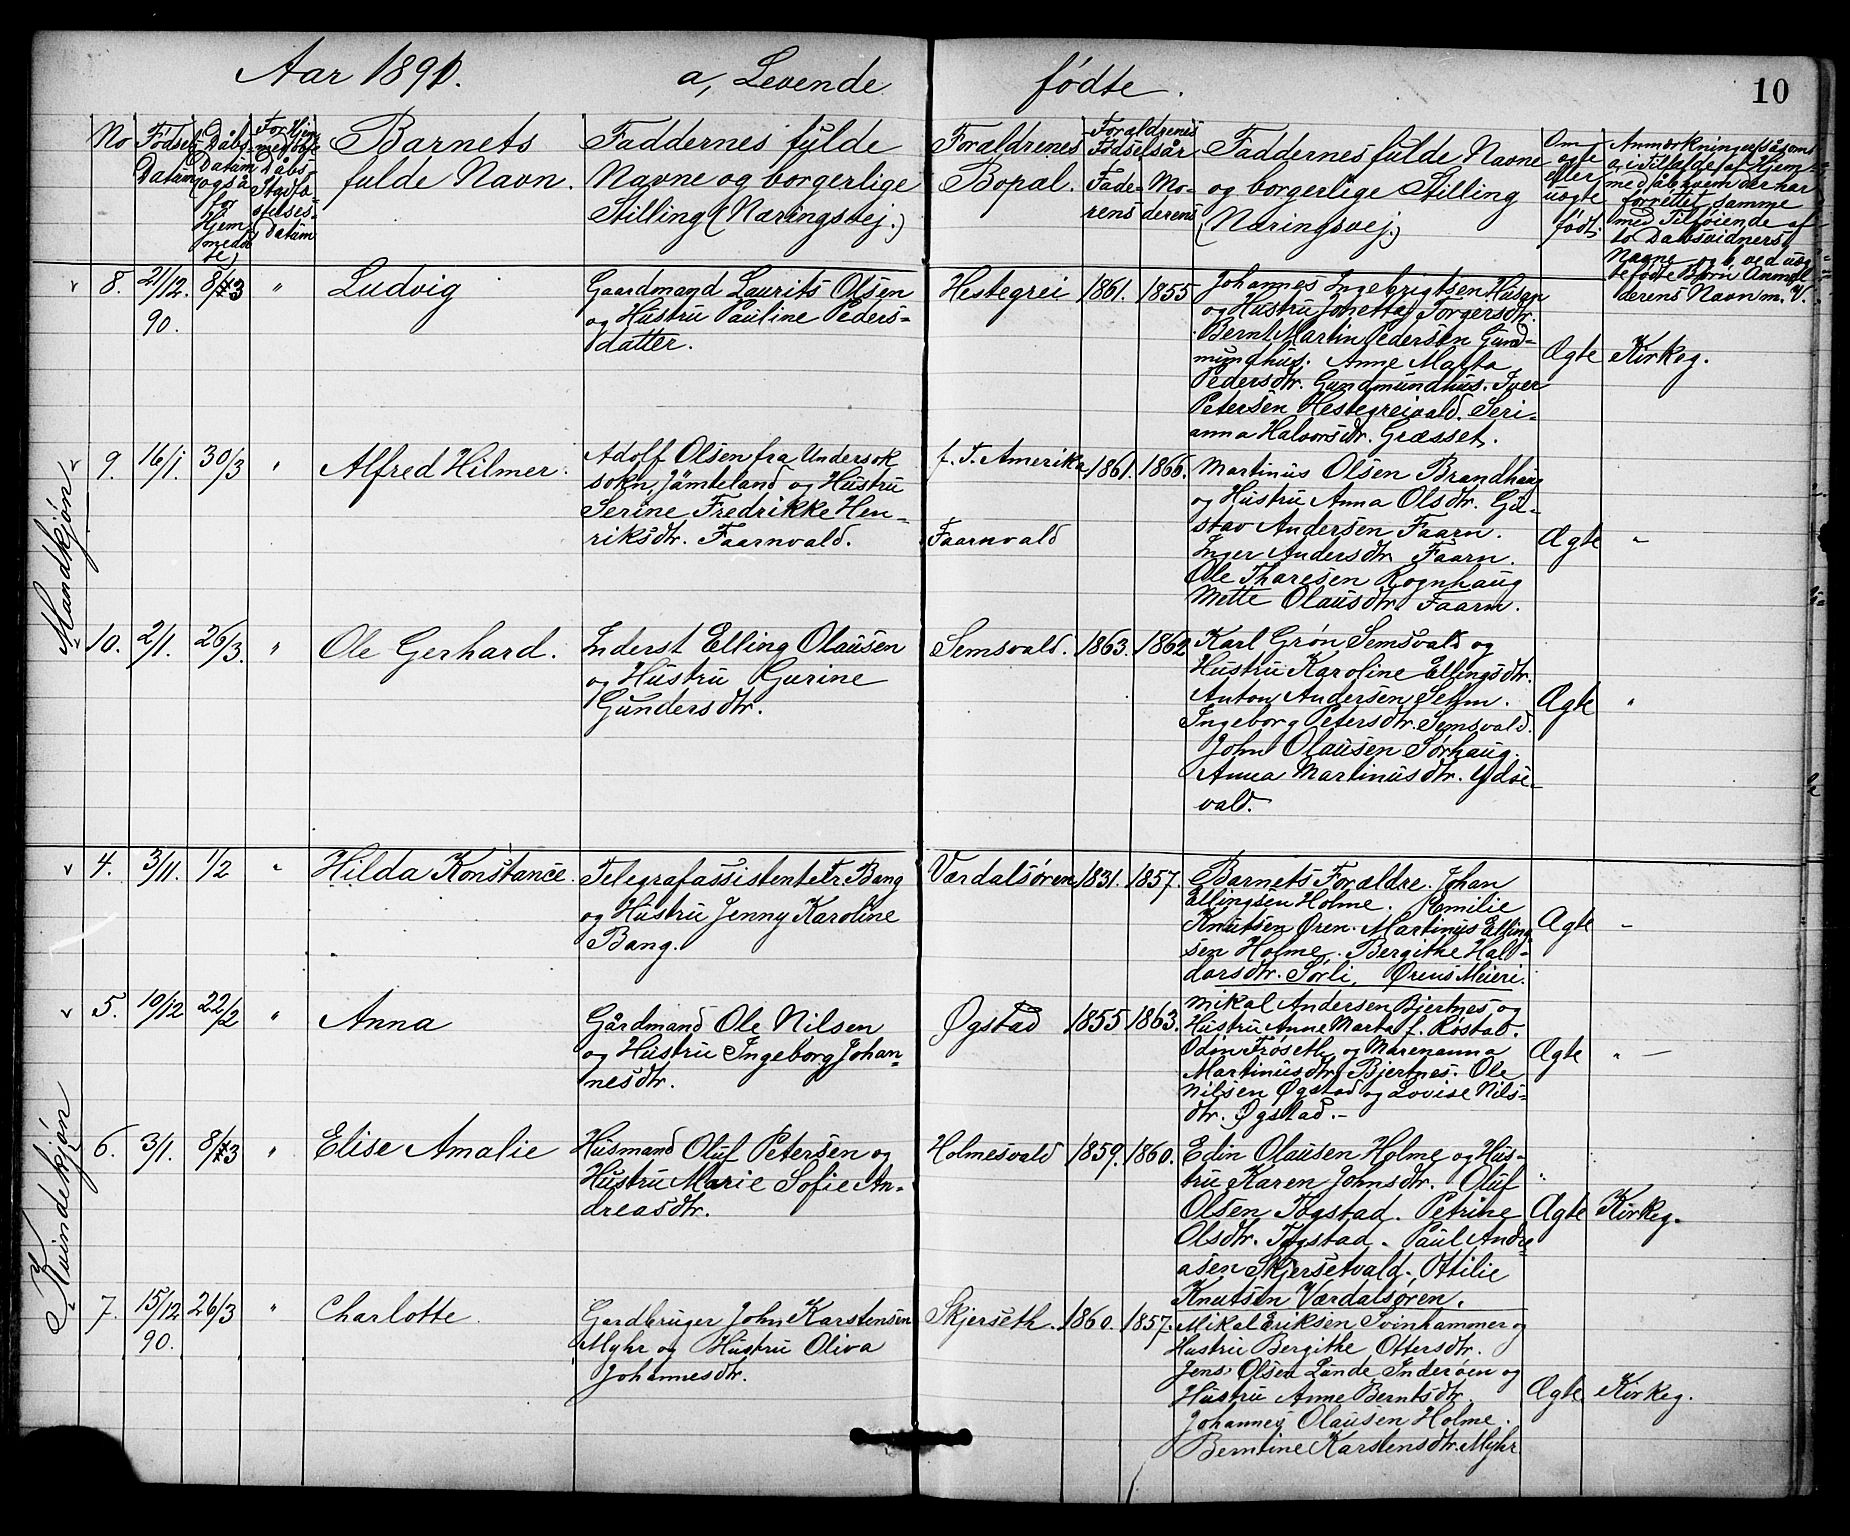 Aar 1891. a, Levende fødte. 10
No
Fødsels Datum
Dåbs Datum også for Hjem medøbte,
For Hjemmedøbte Dåbs Stadfæstelses-Datum
Barnets fulde Navn.
Faddernes fulde Navne og borgerlige Stilling (Næringsvej.)
Forældrenes Bopæl.
Forældrenes Fødselsår
Faderens
Moderens
Faddernes fulde Navne og borgerlige Stilling (Næringsvej.)
Om ægte eller uægte født.
Mandkjøn
8. 21/12. 90. 8/3 " Ludvig
Gaardmand Laurits Olsen
og Hustru Pauline Peders-
datter.
Hestegrei 1861. 1855
Johannes Ingebrigtsen Husan
og Hustru Jonetta Torgersdtr.
Bernt Martin Pedersen Gund-
mundhus. Anne Malta
Pedersdtr. Gundmundhus. Iver
Petersen Hestegreivald. Seri-
anna Halvorsdtr. Græsset.
Ægte Kirkeg.
9. 16/1. 30/3 " Alfred Hilmer.
Adolf Olsen fra Undersok
sokn, Jämteland og Hustru
Serine Fredrikke Hen-
riksdtr. Faarnvald.
f. T. Amerika
Faarnvald
1861. 1866.
Martinus Olsen Brandhaug
og Hustru Anna Olsdtr. Gu-
stav Andersen Faarn.
Inger Andersdtr. Faarn.
Ole Tharesen Rognhaug
Mette Olausdtr. Faarn.
Ægte "
10. 2/1. 26/3. " Ole Gerhard.
Inderst Elling Olausen
og Hustru Gurine
Gundersdtr.
Semsvald. 1863. 1862
Karl Grøn Semsvald og
Hustru Karoline Ellingsdtr.
Anton Andersen Sehm.
Ingeborg Petersdtr. Semsvald.
John Olausen Sørhaug.
Anna Martinusdtr. Ydse-
vald.
Ægte "
Kvindekjøn
4. 3/11. 1/2 " Hilda Konstance.
Telegrafassistent Fr. Bang
og Hustru Jenny Karoline
Bang.
Værdalsøren 1831. 1857.
Barnets Forældre. Johan
Ellingsen Holme. Emilie
Knutsen Øren. Martinus Elling-
sen Holme. Bergithe Hal-
dorsdtr. Sørli, Ørens Meieri.
Ægte "
5. 10/12 22/2 " Anna
Gårdmand Ole Nilsen
og Hustru Ingeborg Johan-
nesdtr.
Øgstad 1855 1863.
Mikal Andersen Bjertnes og
Hustru Anne Marta f. Røstad.
Odin Frøseth og Marenanna
Martinusdtr. Bjertnes. Ole
Nilsen Øgstad og Lovise Nils-
dtr. Øgstad.-
Ægte " —
6. 3/1. 8/3 " Elise Amalie
Husmand Oluf Petersen og
Hustru Marie Sofie An-
dreasdtr.
Holmesvald 1859. 1860.
Edin Olausen Holme og Hus-
tru Karen Johnsdtr. Oluf
Olsen Togstad. Petrine
Olsdtr. Togstad. Paul Andre-
asen Skjersetvald. Ottilie
Knutsen Værdalsøren.
Ægte Kirkeg.
7. 15/12 90. 26/3 " Charlotte.
Gardbruger John Karstensen
Myhr og Hustru Oliva
Johannesdtr.
Skjerseth. 1860. 1857.
Mikal Eriksen Svinhammer og
Hustru Bergithe Ottersdtr.
Jens Olsen Lunde Inderøen og
Hustru Anne Berntsdtr.
Johannes Olausen Holme.
Berntine Karstensdtr. Myhr
Ægte Kirkeg.